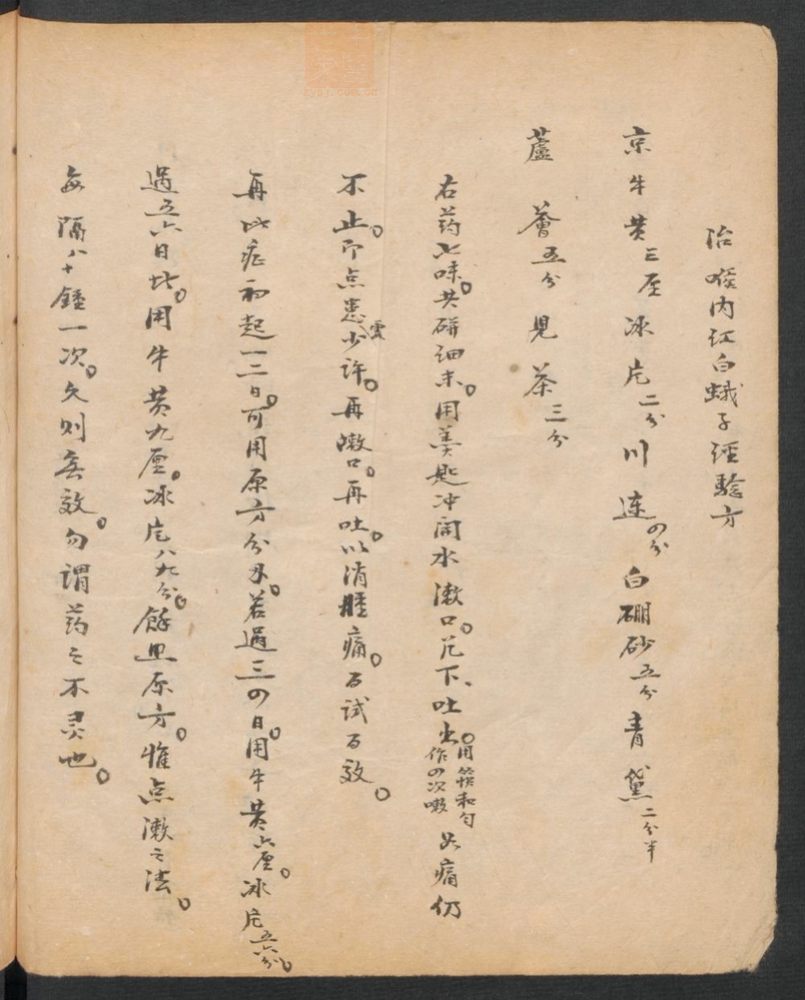 治喉内红白蛾子經驗方
京牛黄三厘 冰片二分 川连四分 白硼砂五分 青黛二分半
蘆薈五分 見茶三分
右药七味。共研细末。用羹匙冲開水漱口。咒下、吐出。用筷和匀作四次嗽 如痛仍
不止。即点患處少许。再漱口。再吐。以消腫痛。百试百效。
再此症初起一二日。可用原方分两。若過三四日。用牛黄六厘。冰片五六分。
過五六日外。用牛黄九厘。冰片八九分。餘照原方。惟点漱之法。
每隔八十鐘一次。久则無效。勿谓药之不灵也。